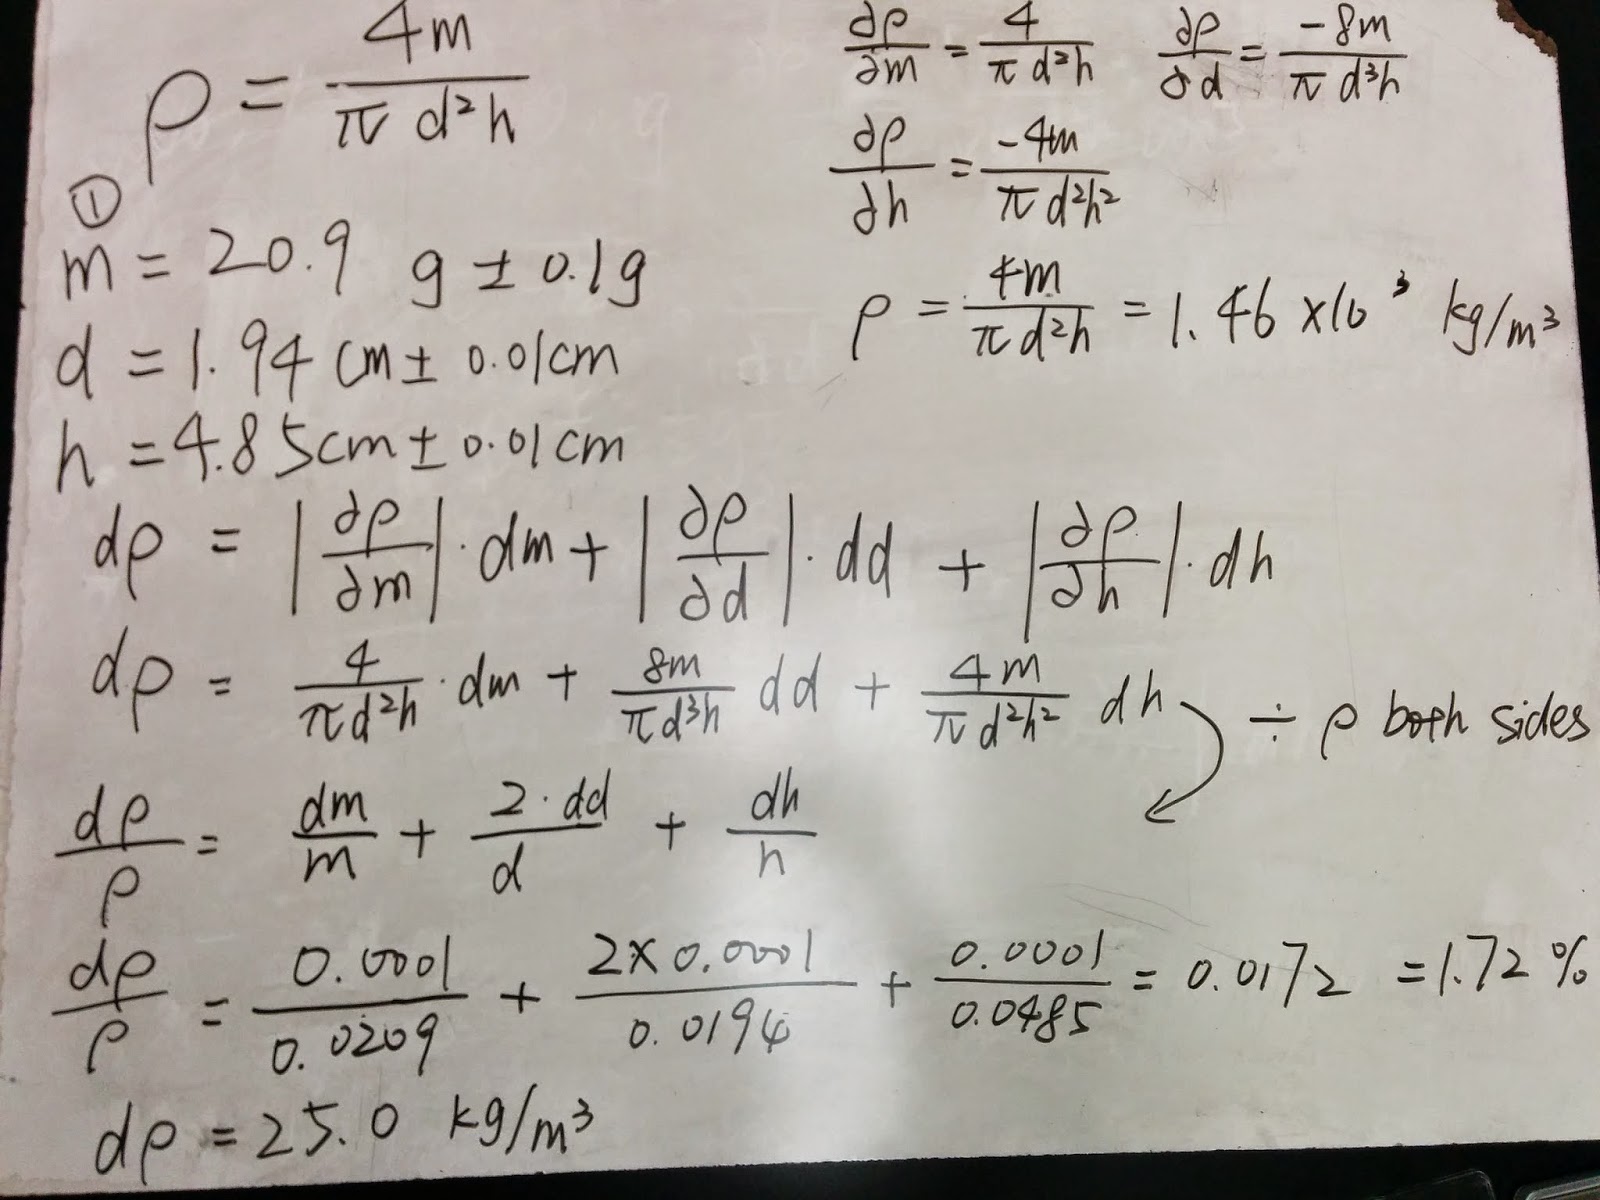 ρ = 4m / π d²h
∂ρ/∂m = 4 / π d²h    ∂ρ/∂d = -8m / π d³h
∂ρ/∂h = -4m / π d²h²
①
m = 20.9 g ± 0.1g
ρ = 4m / π d²h = 1.46 ×10³ kg/m³
d = 1.94 cm ± 0.01cm
h = 4.85cm ± 0.01cm
dρ = |∂ρ/∂m| · dm + |∂ρ/∂d| · dd + |∂ρ/∂h| · dh
dρ = 4 / π d²h · dm + 8m / π d³h dd + 4m / π d²h² dh ÷ ρ both sides
dρ/ρ = dm/m + 2·dd / d + dh/h
dρ/ρ = 0.0001 / 0.0209 + 2×0.0001 / 0.0194 + 0.0001 / 0.0485 = 0.0172 = 1.72 %
dρ = 25.0 kg/m³